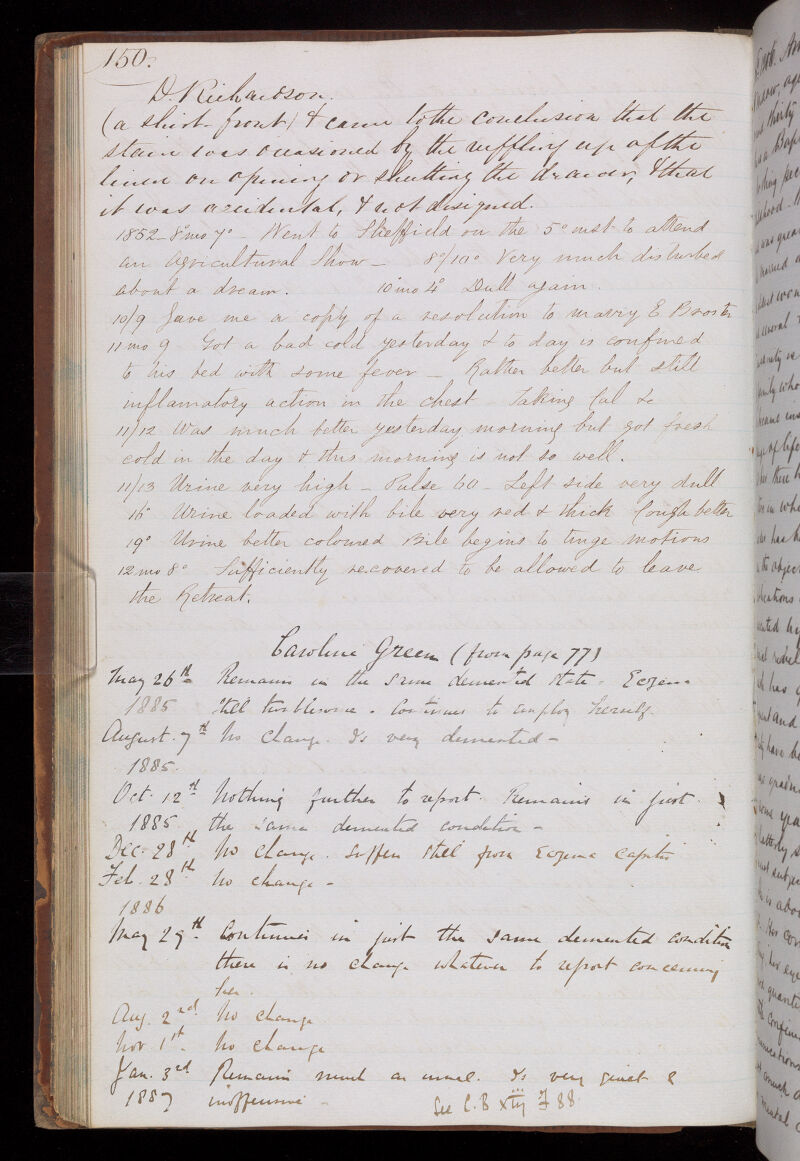 150.
D. Richardson.
(a shirt front) & came to the conclusion that the
stain was occasioned by the ruffling up of the
linen on opening or shutting the drawer, & that
it was accidental, & not designed.
1852 - 8º mo 7º - Went to Sheffield on the 5º inst to attend
an Agricultural Show - 8º/10º Very much disturbed
about a dream. 10 mo 4º Dull again.
10/9 Gave me a copy of a resolution to marry E
11 mo 9 Got a bad cold yesterday & to day is confined
to his bed with some fever - Rather better but still
inflamatory action in the chest Taking Cal &c
11/12 Was much better yesterday morning but got fresh
cold in the day & this morning is not so well.
11/13 Urine very high - Pulse 60 - Left side very dull
16º Urine loaded with bile very red & thick Cough better
19º Urine better coloured Bile begins to tinge motions
12 mo 8º Sufficiently recovered to be allowed to leave
the Retreat.
Caroline Green (from page 77)
May 26th Remains in the same demented state - Eczema
1885 still troublesome. Continues to employ herself.
August 7th No change. Is very demented -
1885
Oct. 12th Nothing further to report. Remains in just
1885 the same demented condition -
Dec. 28th No change. Suffers still from Eczema capitis
Feb. 28th No change -
1886
May 29th Continues in just the same demented condition
there is no change whatever to report concerning
her.
Aug. 2nd No change
Nov. 1st No change
Jan. 3rd Remains much as usual. Is very quiet &
1887 inoffensive -
See C.B 88